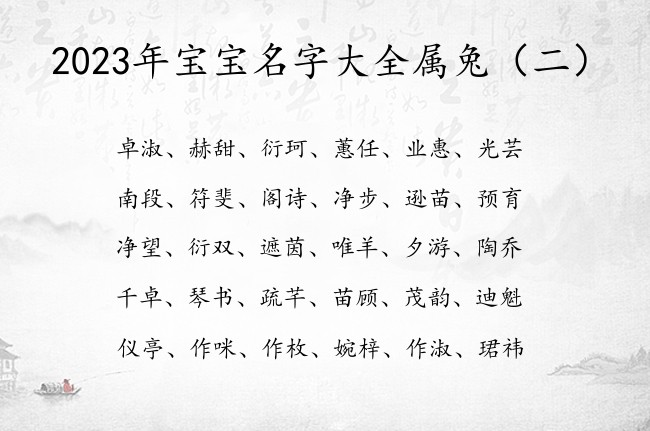 2023年宝宝名字大全属兔（二）
卓淑、赫甜、衍珂、蕙任、业惠、光芸
南段、符斐、阁诗、净步、逊苗、预育
净望、衍双、遮茵、唯羊、夕游、陶乔
千卓、琴书、疏芊、苗顾、茂韵、迪魁
仪亭、作咪、作枚、婉梓、作淑、珺祎